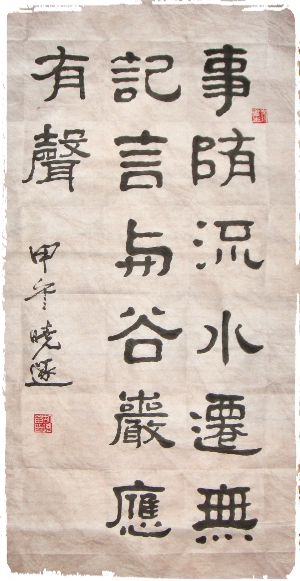 事陏流水遷無
記言与谷巖應
有聲
甲午曉